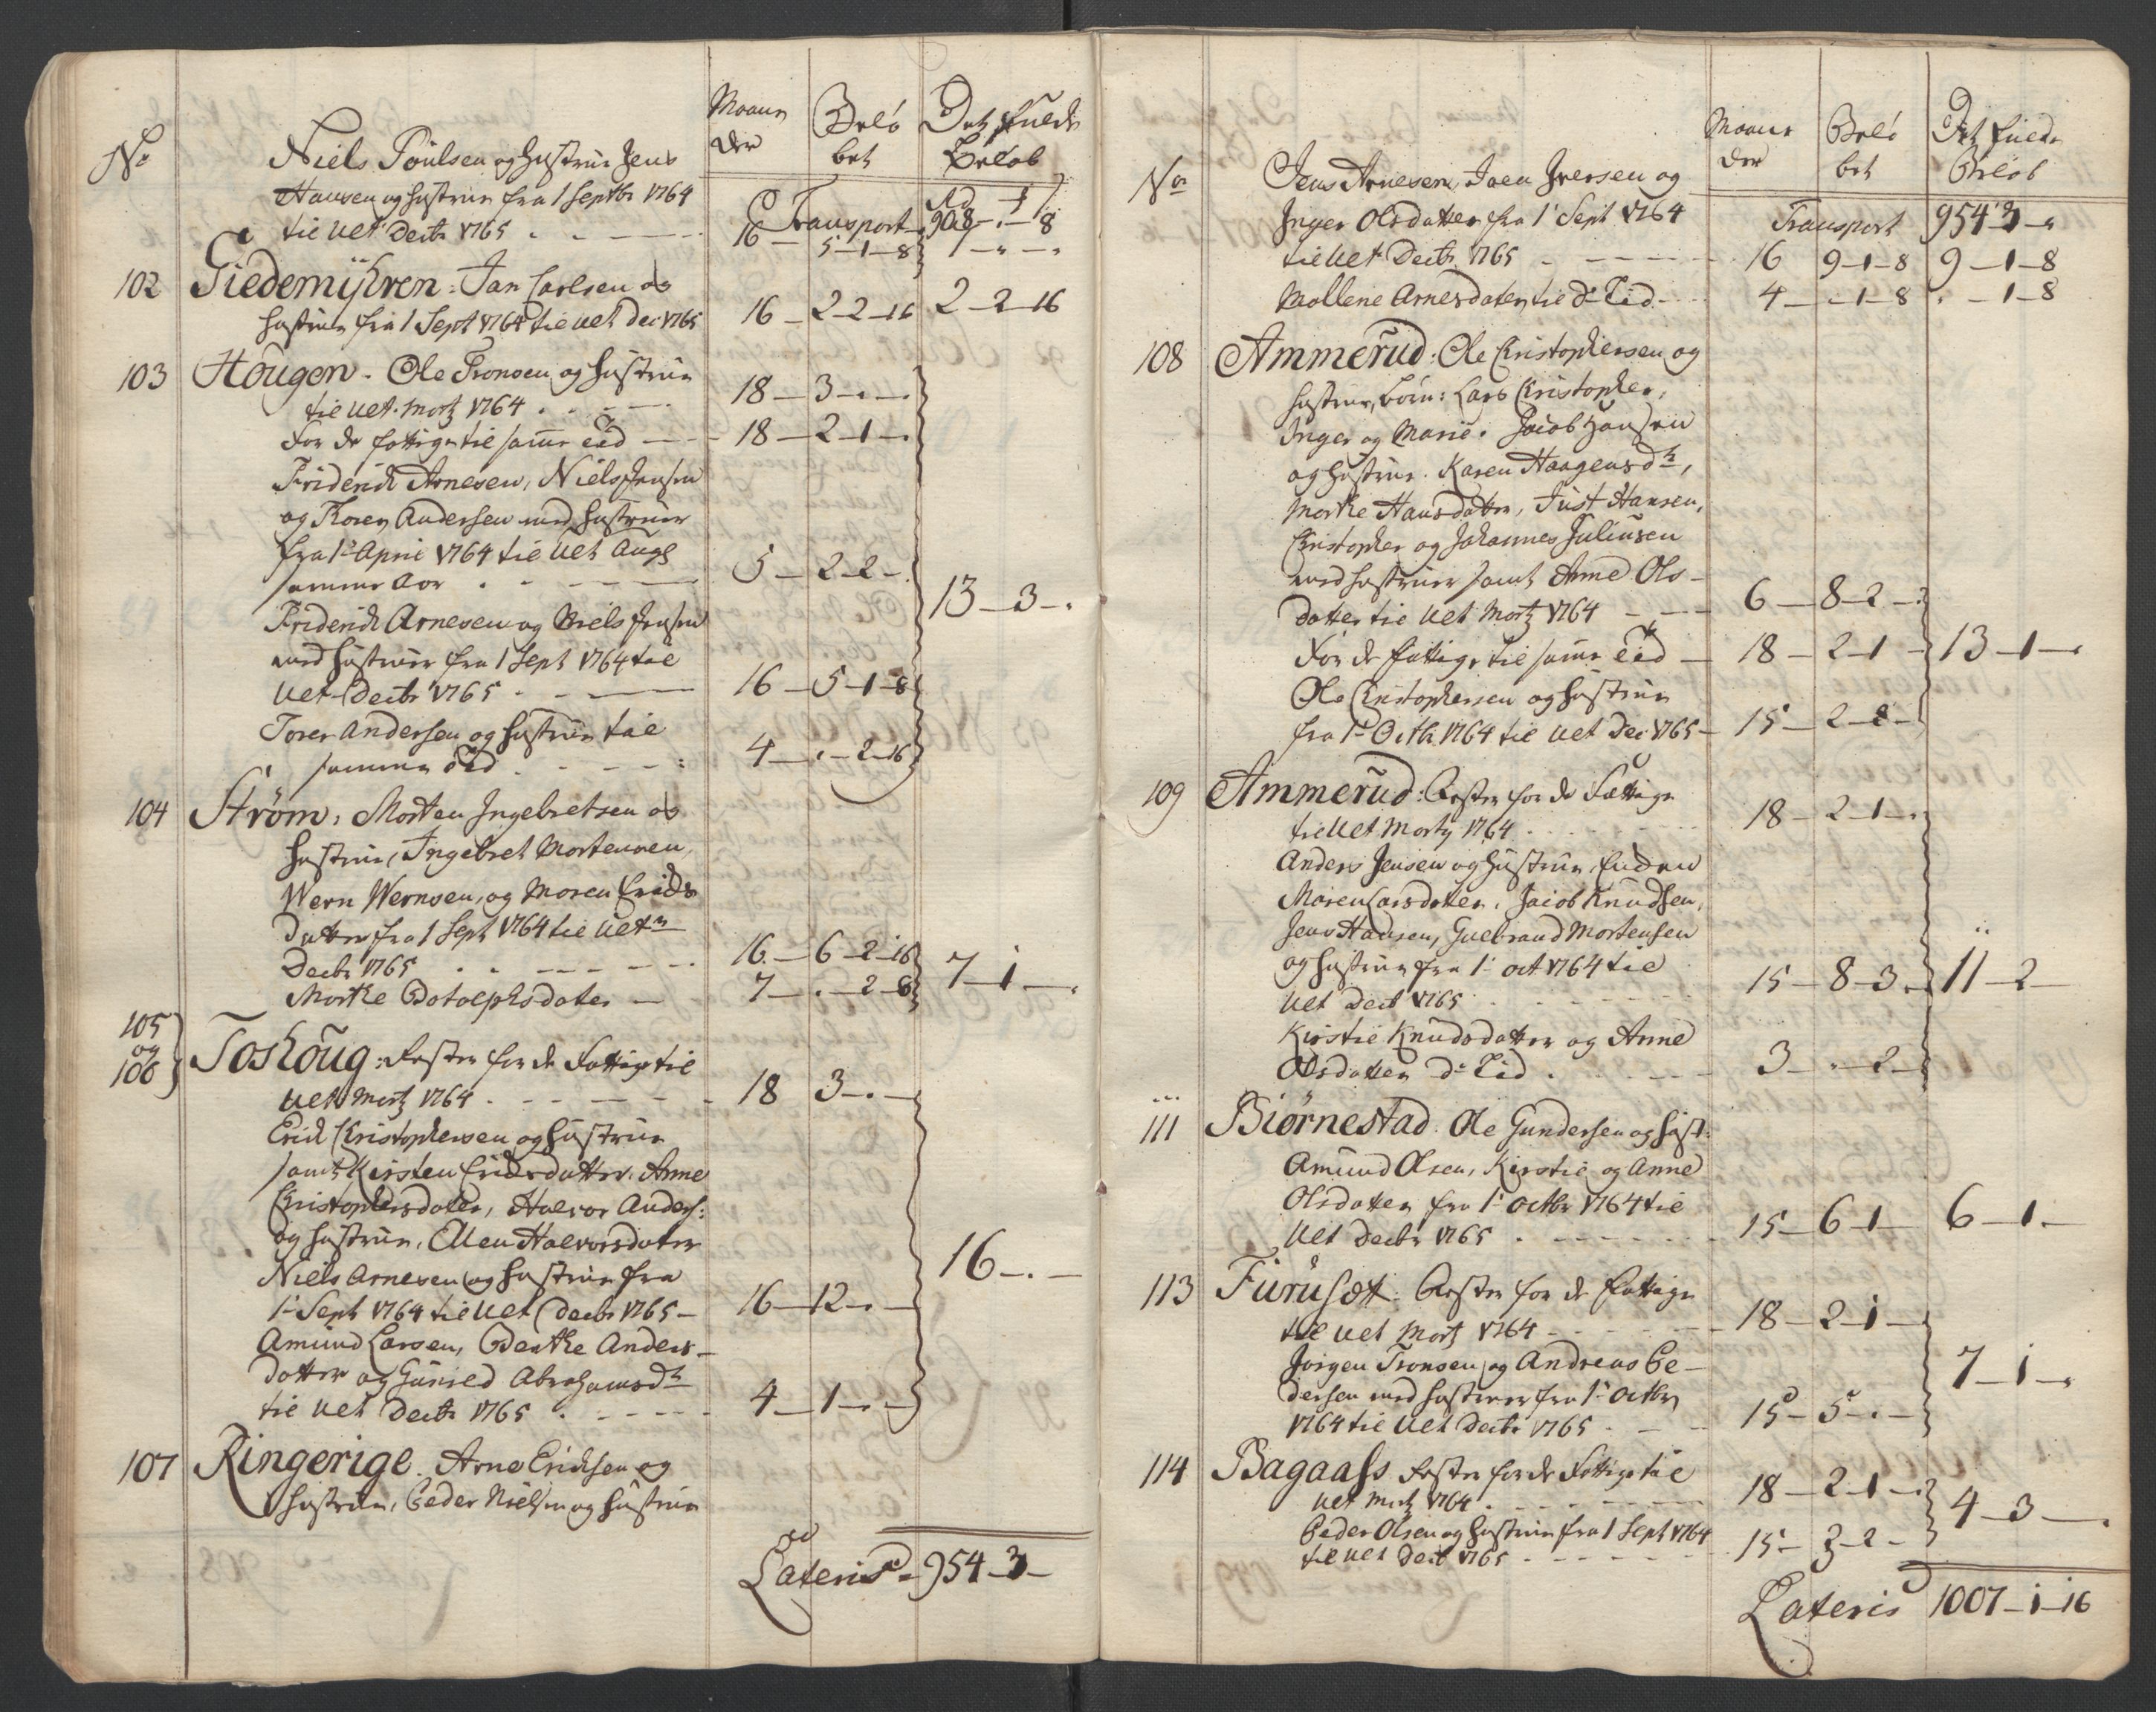 No
Maane
der
Belø
bet
Det fulde
Beløb
Niels Poulsen og Hustrue Jens
Hansen og Hustrue fra 1 Septbr 1764
til ult Decbr 1765 . . — 16 — 5-1-8
Transport 908-.-8
102 Tiedemyhren: Jan Carlsen og
Hustrue fra 1 Sept 1764 til ult Dec 1765 16 — 2-2-16 2-2-16
103 Hougen. Ole Tronsen og Hustrue
til ult. Martz 1764 . . . 18 — 3-.-.
For de fattige til samme Tid — 18 — 2-1-.
Friderich Arnesen, Niels Jensen
og Thorer Andersen med Hustruer
fra 1 April 1764 til ult Aug
samme Aar . . — 5 — 2-2-.
13-3-.
Friderich Arnesen og Niels Jensen
med Hustruer fra 1 Sept 1764 til
ult Decbr 1765 . — 16 — 5-1-8
Torer Andersen og Hustrue til
samme Tid . . — 4 — .-2-16
104 Strøm: Morten Ingebretsen og
Hustrue, Ingebret Mortensen,
Wern Wernsen, og Maren Erichs
Datter fra 1 Sept 1764 til ult
Decbr 1765 . . — 16 — 6-2-16
7-1-.
Marthe Botolphsdatter — 7 — .-2-8
105
og
106
Toshoug: Rester for de Fattige til
ult Martz 1764 . — 18 3-.-
Erich Christophersen og Hustrue
samt Kirsten Erichsdatter. Anne
Christophersdatter, Halvor Anders:
og Hustrue, Ellen Halvorsdatter
16-.-
Niels Arnesen og Hustrue fra
1 Sept 1764 til ult Decbr 1765 — 16 — 12-.-
Amund Larsen, Berthe Anders-
datter og Gunild Abrahamsdtr
til ult Decbr 1765 . — 4 — 1-.-
107 Ringerige. Arne Erichsen og
Hustrue, Peder Nielsen og Hustrue
Lateris 954-3-
No
Maane
der
Belø
bet
Det fulde
Beløb
Jens Arnesen, Joen Iversen og
Inger Olsdatter fra 1 Sept 1764
Transport 954-3-.
til ult Decbr 1765 . — 16 9-1-8 9-1-8
Mallene Arnesdatter til do Tid . 4 — .-1-8 .-1-8
108 Ammerud: Ole Christophersen og
Hustrue, Børn: Lars Christopher,
Inger og Marie. Jacob Hansen
og Hustrue. Karen Haagensdtr,
Marthe Hansdatter, Just Hansen,
Christopher og Johannes Juliusen
med Hustruer samt Anne Ols-
datter til ult Martz 1764 — 6 — 8-2-.
For de fattige til samme Tid — 18 — 2-1- 13-1-.
Ole Christophersen og Hustrue
fra 1 Octbr 1764 til ult Dec 1765 — 15 — 2-2-
109 Ammerud: Rester for de Fattige
til ult Martz 1764 . . 18 — 2-1-.
Anders Jensen og Hustrue,
Maren Larsdatter, Jacob Knudsen,
Jens Hansen, Gulbrand Mortensen
og Hustrue fra 1 oct 1764 til
ult Decb 1765 . . 15 — 8-3-. 11-2-
Kirstie Knudsdatter og Anne
Olsdatter do Tid . . 3 — .-2-
111 Biørnestad. Ole Gundersen og Hust:
Amund Olsen, Kirstie og Anne
Olsdatter fra 1 octbr 1764 til
ult Decbr 1765 . — 15 — 6-1- 6-1-
113 Furusæt: Rester for de fattige
til ult Martz 1764 — 18 — 2-1-
7-1-.
Jørgen Tronsen og Andreas Pe-
dersen med Hustruer fra 1 Octbr
1764 til ult Decbr 1765 . — 15 — 5-.-
114 Bagaass Rester for de Fattige til
ult Martz 1764 . . 18 — 2-1-.
4-3-.
Peder Olsen og Hustrue fra 1 Sept 1764
til ult Decb 1765 . . 15 — 3-2-
Lateris 1007-1-16